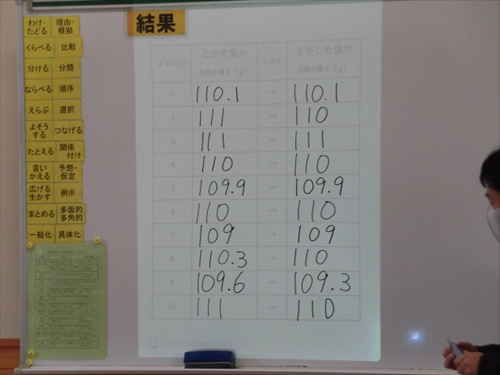 結果
わけ・たどる 理由・根拠
くらべる 比較
分ける 分類
ならべる 順序
えらぶ 選択
よそうする つなげる
たとえる 関係付け
言いかえる 予想・仮定
広げる生かす 例示
まとめる 多面的多角的
一般化 具体化
グループ とかす前の全体の重さ(g) とかす とかした後の全体の重さ(g)
1 110.1 → 110.1
2 111 → 110
3 111 → 111
4 110 → 110
5 109.9 → 109.9
6 110 → 110
7 109 → 109
8 110.3 → 110
9 109.6 → 109.3
10 111 → 110